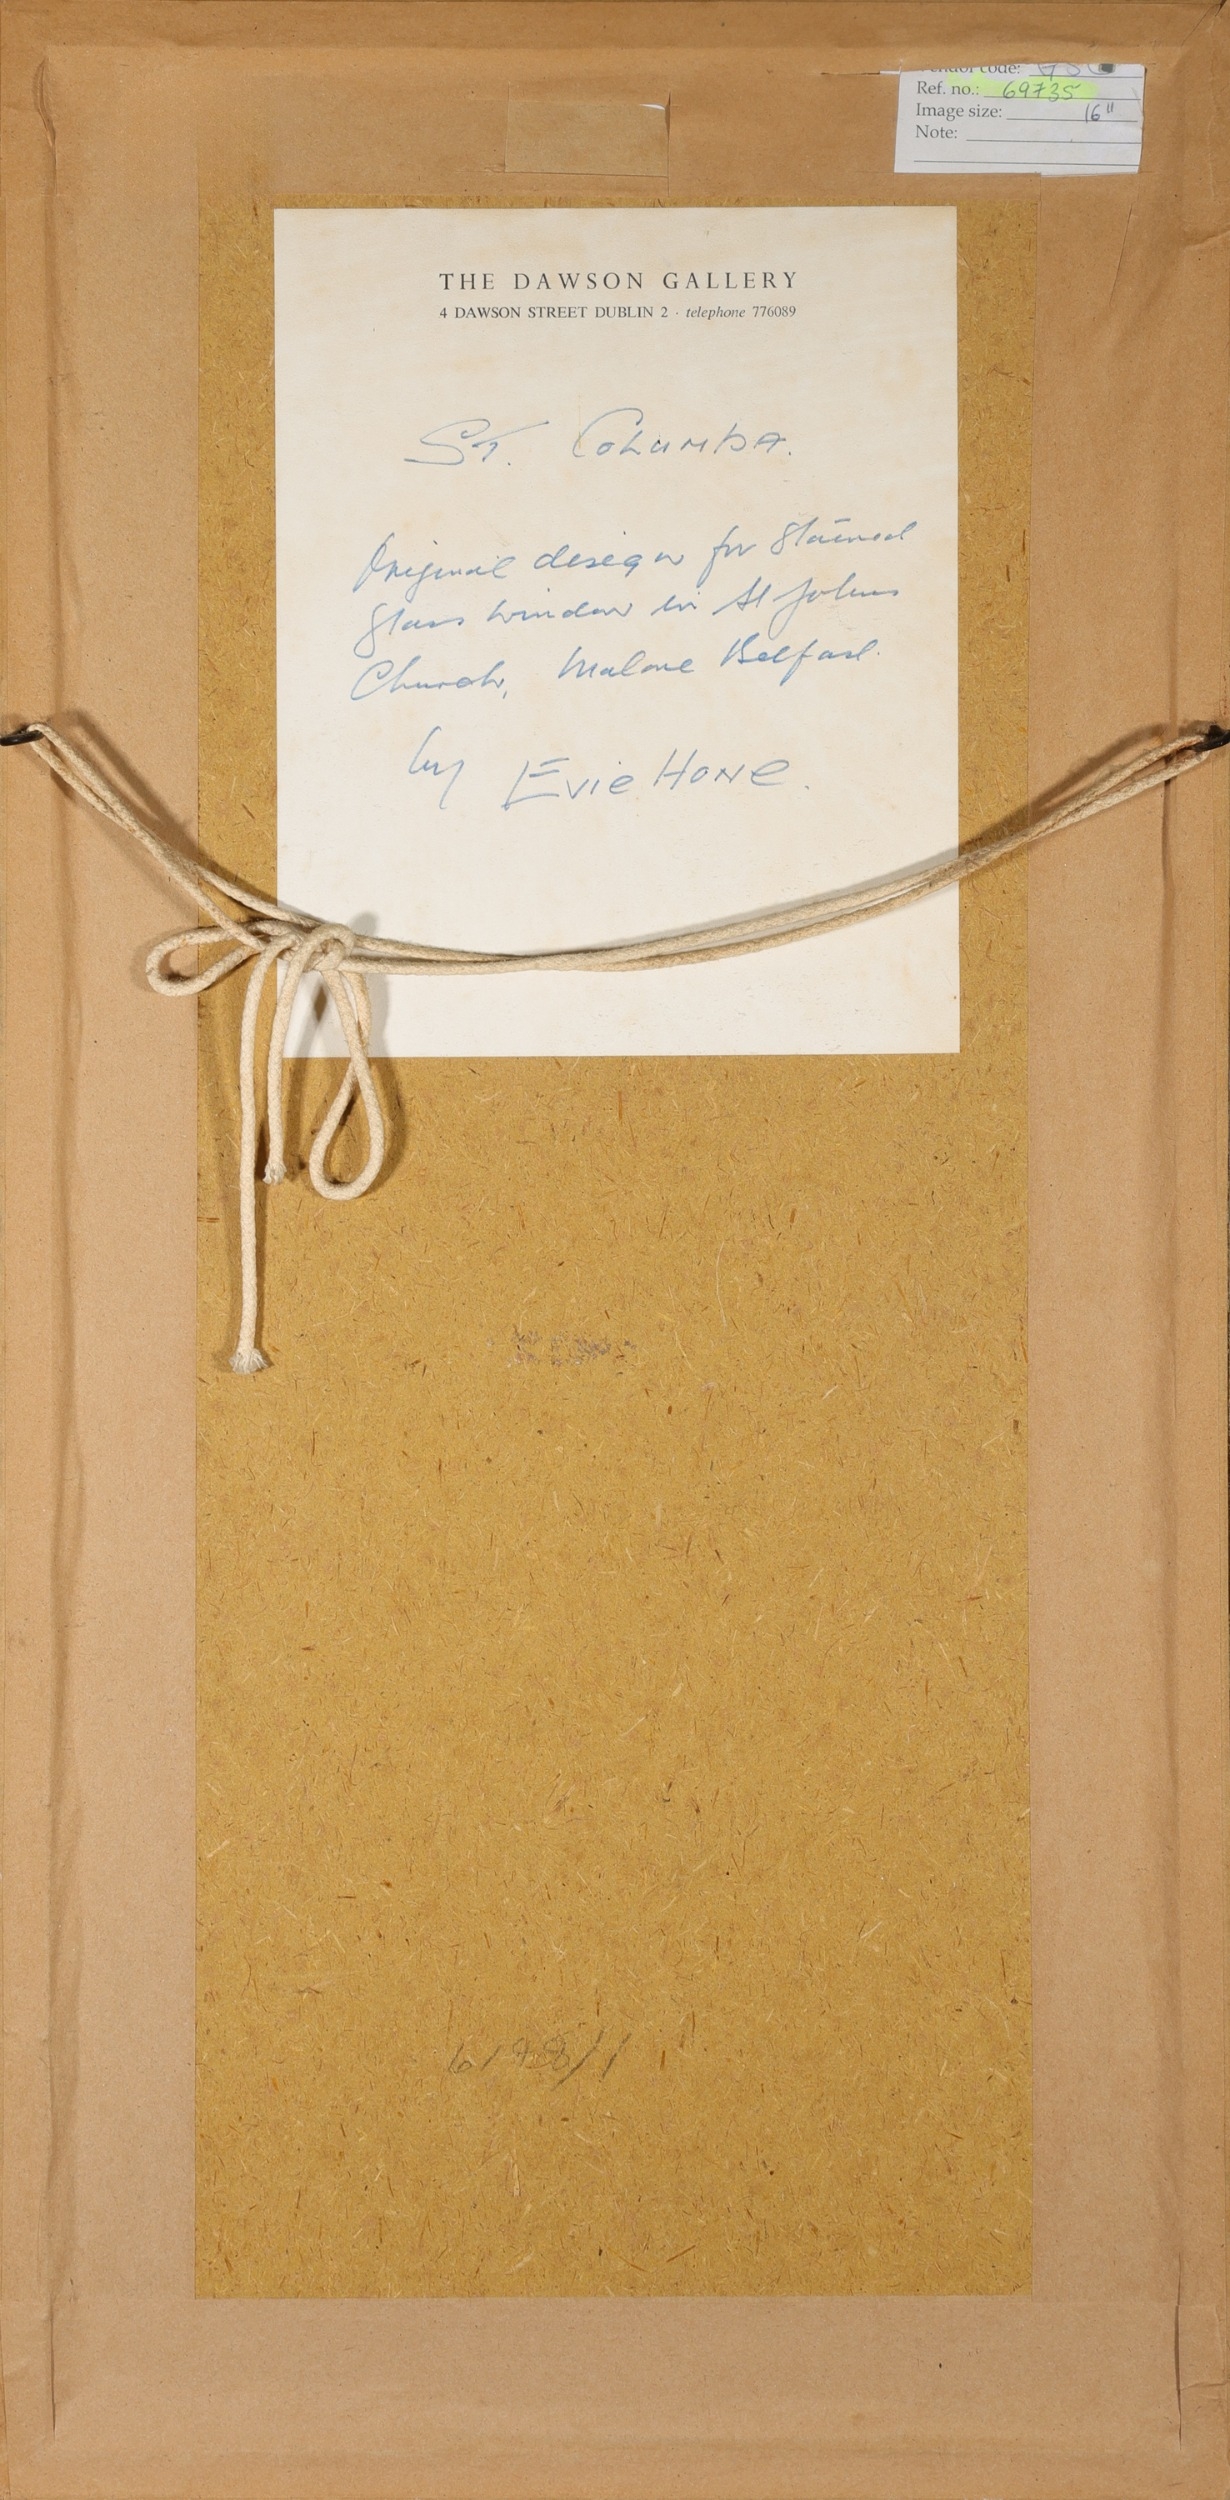 Vendor code:
Ref. no.: 69735
Image size: 16"
Note:
THE DAWSON GALLERY
4 DAWSON STREET DUBLIN 2 · telephone 776089
ST. COLUMBA.
Original design for Stained
Glass Window in St Johns
Church, Malone Belfast.
by Evie Hone.
6198/1